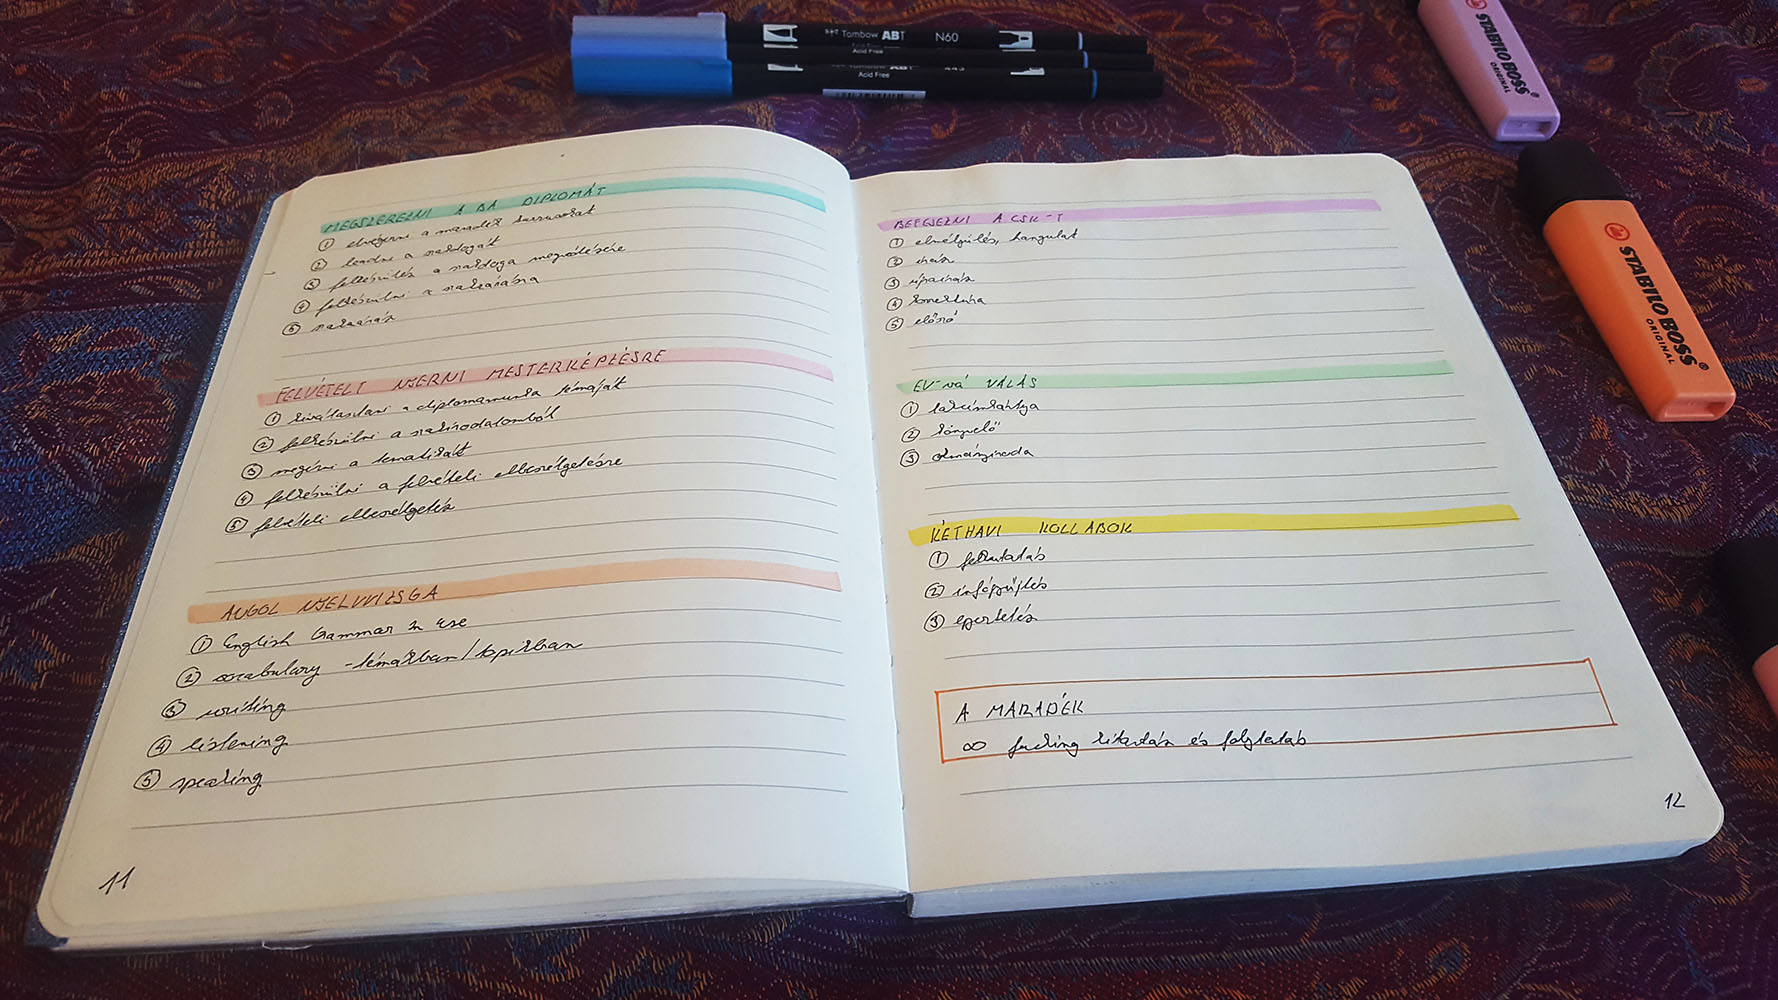 Tombow ABT N60
Acid Free
Tombow ABT
Acid Free
STABILO BOSS
ORIGINAL
STABILO BOSS
ORIGINAL
MEGSZEREZNI A BA DIPLOMÁT
① elvégezni a maradék kurzusokat
② leadni a szakdogát
③ felkészülés a szakdoga megvédésére
④ felkészülni a szakzáróra
⑤
FELVÉTELT NYERNI MESTERKÉPZÉSRE
① kiválasztani a diplomamunka témáját
② felkészülni a szakirodalomból
③ megírni a tematikát
④ felkészülni a felvételi elbeszélgetésre
⑤ felvételi elbeszélgetés
ANGOL NYELVVIZSGA
① English Grammar in Use
② vocabulary - témákban/topikban
③ writing
④ listening
⑤ speaking
11
BEFEJEZNI A CSK-T
① elmélyülés, hangulat
② írás
③ újraírás
④ korektúra
⑤ előszó
EV-VÁ VÁLÁS
① lakcímkártya
② könyvelő
③ okmányiroda
KÉTHAVI KOLLABOK
① felkutatás
② infógyűjtés
③ egyeztetés
A MARADÉK
∞ fucking kitartás és folytatás
12